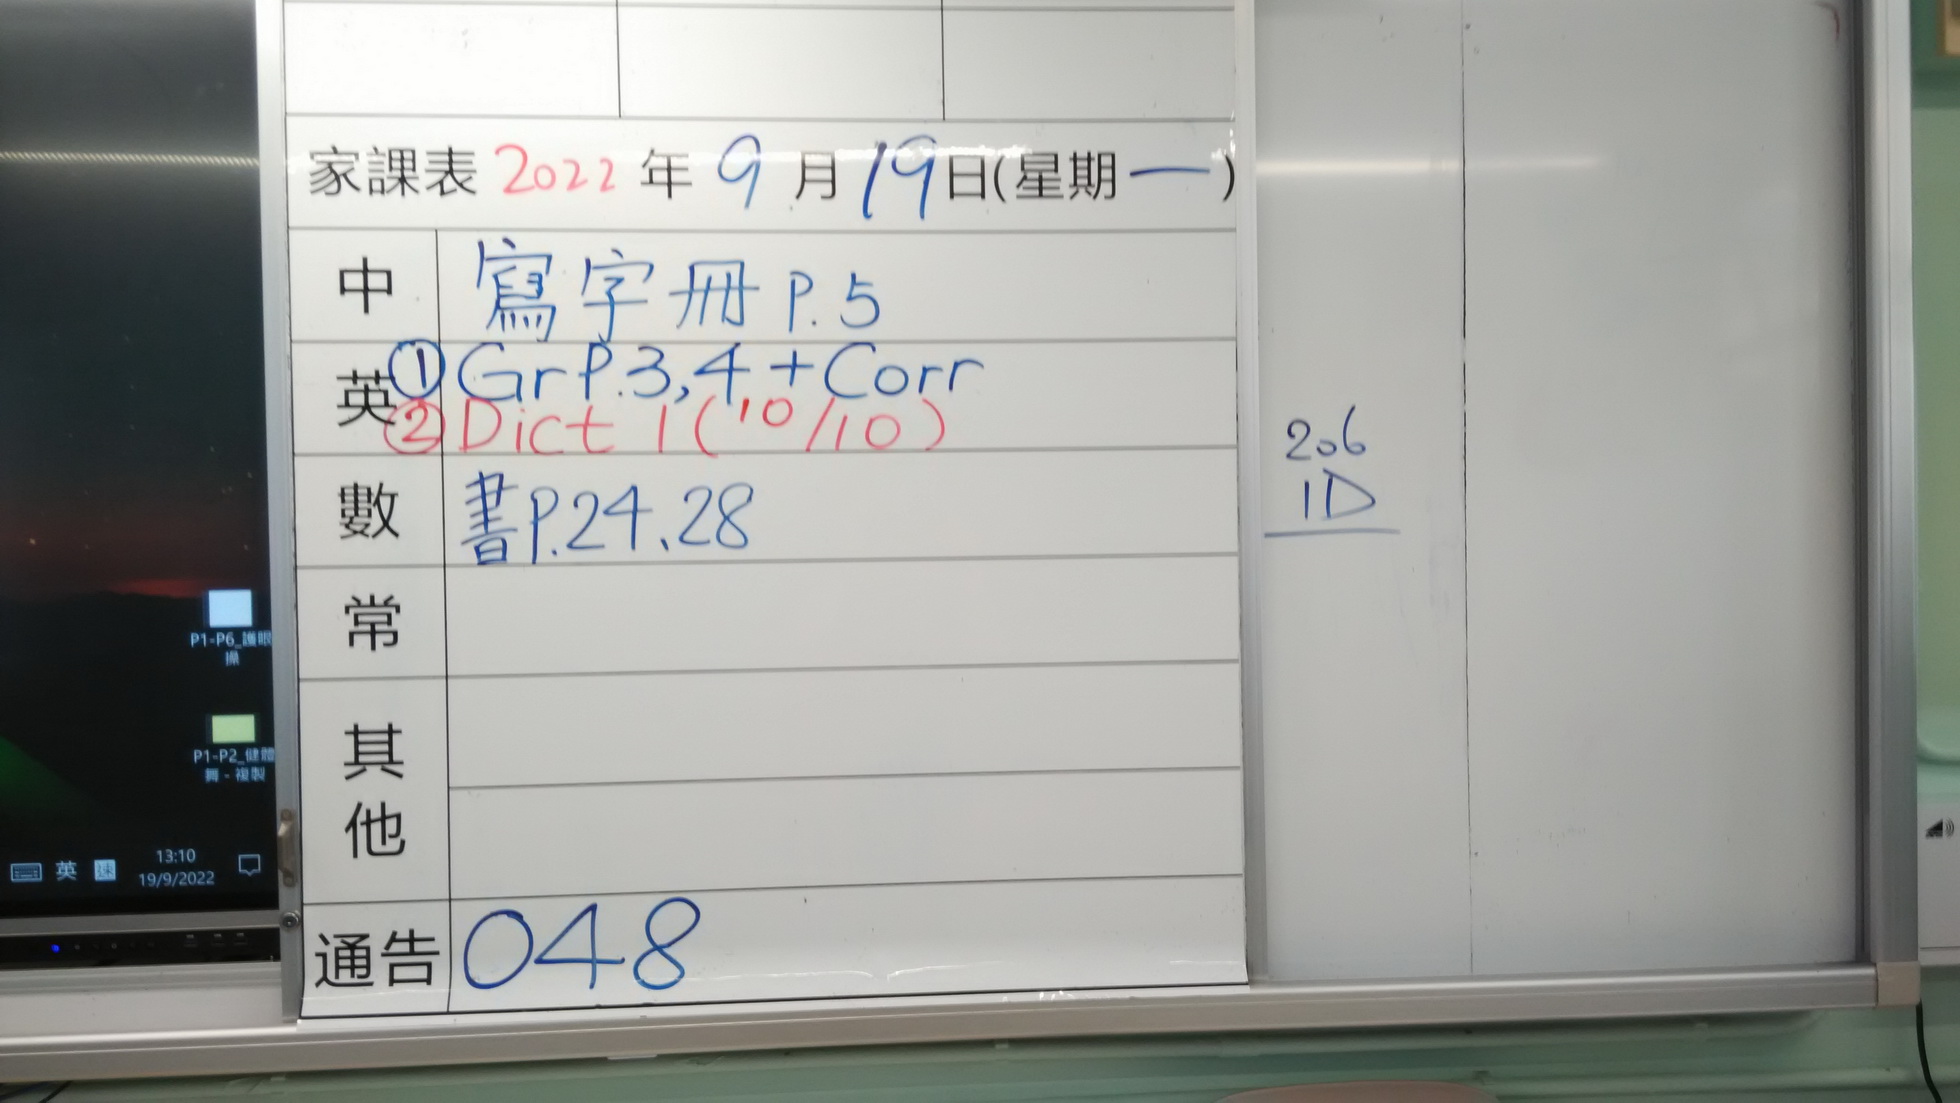 家課表 2022 年 9 月 19 日(星期一)
中 寫字冊 P.5
英 ① Gr P.3,4 + Corr
② Dict 1 (10/10)
數 書P.24、28
常
其他
通告 048
206
1D
P1-P6_護眼
操
P1-P2_健體
舞 - 複製
英 速 13:10
19/9/2022